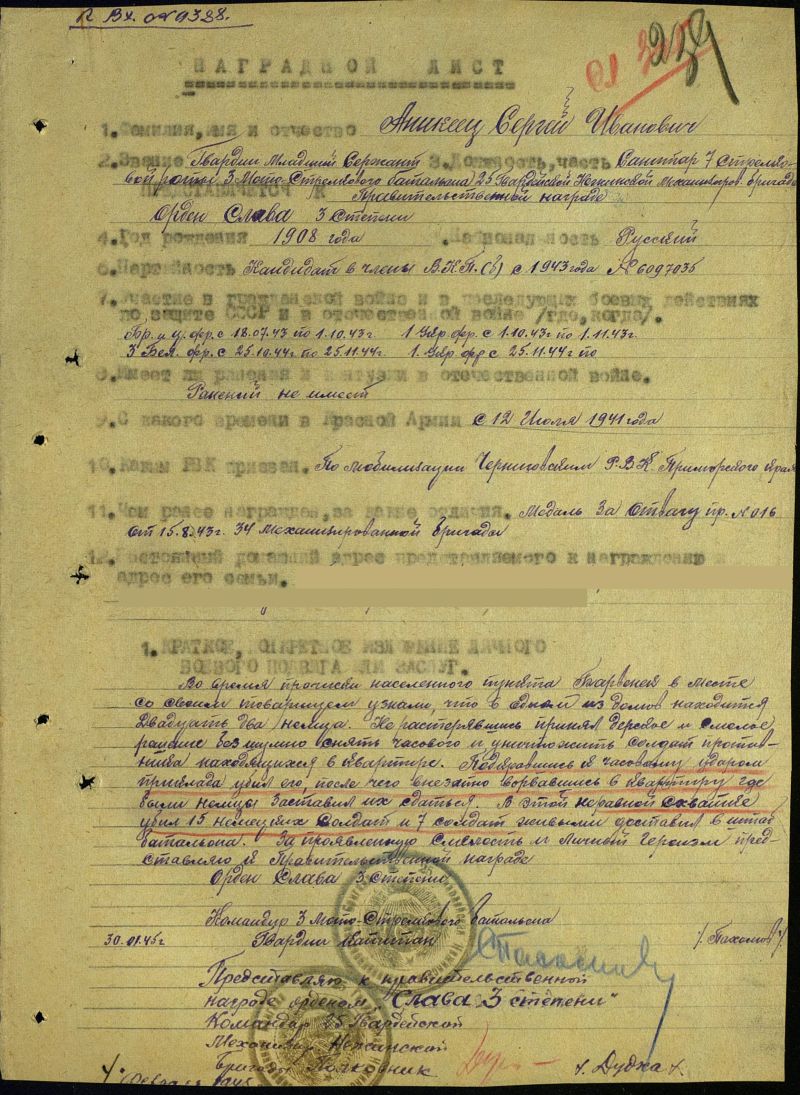 Вх. № 9328.
239
НАГРАДНОЙ ЛИСТ
1. Фамилия, имя и отчество Аникеец Сергей Иванович
2. Звание Гвардии Младший Сержант 3. Должность, часть Санитар 7 Стрелко-
вой роты 3 Мото-Стрелкового батальона 25 Гвардейской Нежинской Механизиров. бригады
ПРЕДСТАВЛЯЕТСЯ К Правительственной награде
Орден Слава 3 Степени
4. Год рождения 1908 года . Национальность Русский
6. Партийность Кандидат в члены В.К.П.(б) с 1943 года № 6097035
7. Участие в гражданской войне и в последующих боевых действиях
по защите СССР и в отечественной войне /где, когда/.
фр. с 18.07.43 по 1.10.43г. 1 Укр фр. с 1.10.43г. по 1.11.43г.
3 Бел. фр. с 25.10.44г. по 25.11.44г. 1 Укр фр с 25.11.44г по
8. Имеет ли ранения и контузии в отечественной войне.
Ранений не имеет
9. С какого времени в Красной Армии с 12 Июля 1941 года
10. Каким РВК призван. По мобилизации Черниговским Р.В.К. Приморского края
11. Чем ранее награжден, за какие отличия. Медаль За Отвагу пр. № 016
от 15.8.43г. 34 Механизированной бригады
12. Постоянный домашний адрес представляемого к награждению и
адрес его семьи.
1. КРАТКОЕ, КОНКРЕТНОЕ ИЗЛОЖЕНИЕ ЛИЧНОГО
БОЕВОГО ПОДВИГА ИЛИ ЗАСЛУГ.
Во время прочиски населенного пункта в месте
со своим товарищем узнали, что в одном из домов находится
Двадцать два немца. Не растерявшись принял дерзкое и смелое
решение без шумно снять часового и уничтожить солдат против-
ника находящихся в квартире. Подкравшись к часовому ударом
приклада убил его, после чего внезапно ворвавшись в квартиру где
были немцы заставил их сдаться. В этой неравной схватке
убил 15 немецких солдат и 7 солдат живыми доставил в штаб
батальона. За проявленную смелость и личный героизм пред-
ставляю к Правительственной награде
Орден Слава 3 степени
Командир 3 Мото-Стрелкового батальона
30.01.45г Гвардии Капитан /Пахомов/
Представляю к правительственной
награде орденом "Слава 3 степени"
Командир 25 Гвардейской
Механизир Нежинской
Бригады Полковник /Дудка/
Февраля 1945